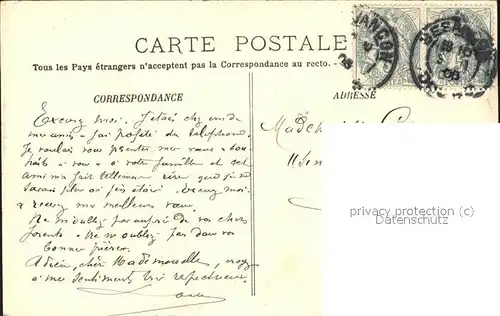 CARTE POSTALE
Tous les Pays étrangers n'acceptent pas la Correspondance au recto.
CORRESPONDANCE
ADRESSE
BESANÇON
Excusez moi. J'étais chez un de
mes amis - J'ai profité du téléphone.
Je voulais vous présenter mes vœux
à vous & à votre famille et cet
ami m'a fait tellement rire que je ne
savais plus où j'en étais. Excusez moi
& recevez mes meilleurs vœux.
Ne m'oubliez pas auprès de vos chers
parents - Ne m'oubliez pas dans vos
bonnes prières.
Adieu, chère Mademoiselle, croyez
à mes sentiments très respectueux.
privacy protection (c)
Datenschutz